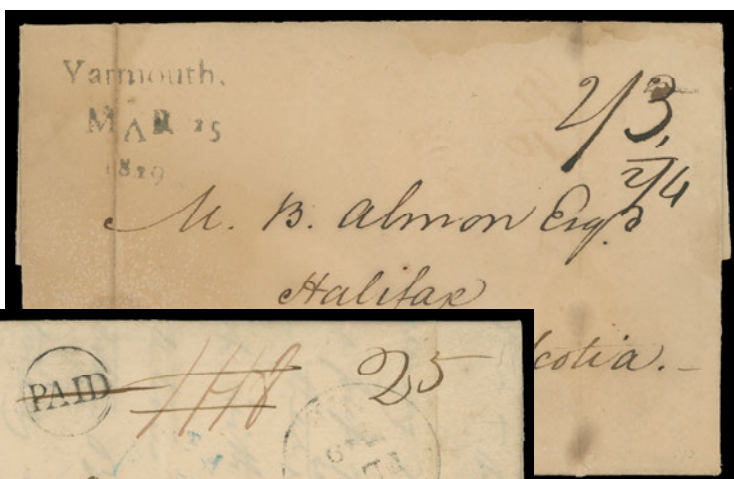 Yarmouth.
MAR 25
1829
2/3,
2/4
M. B. Almon Esqr
Halifax
cotia.
PAID
25